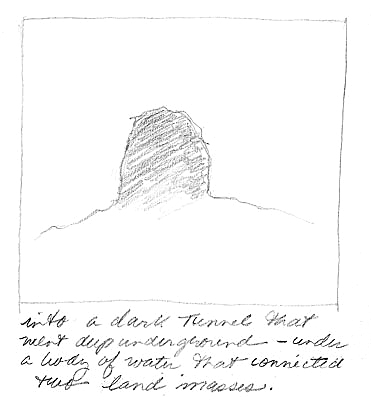 into a dark tunnel that
went deep underground - under
a body of water that connected
two land masses.